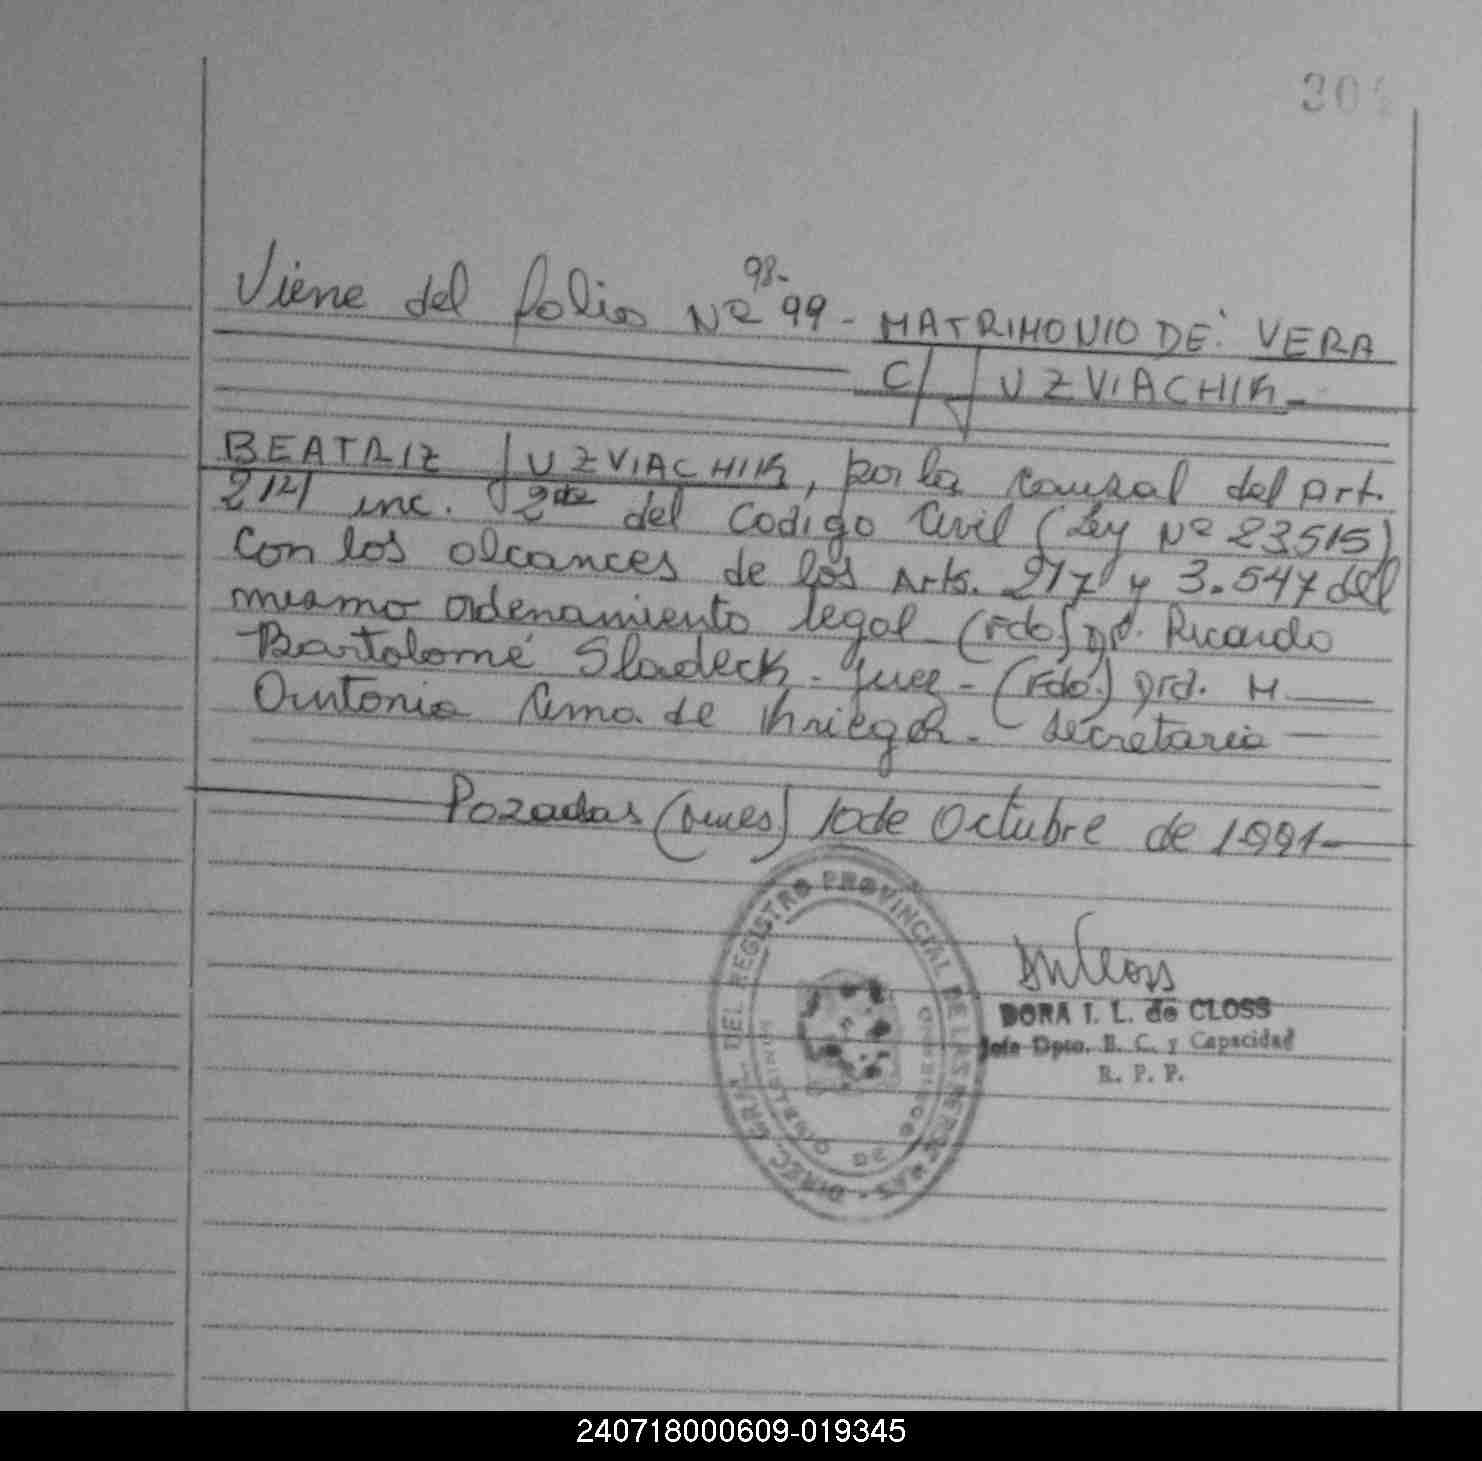 304
Viene del folio Nº 98-99 - MATRIMONIO DE: VERA
C/ JUZVIACHIK -
BEATRIZ JUZVIACHIK, por la causal del Art.
214 inc. 2do del Codigo Civil (Ley Nº 23515)
Con los alcances de los Arts. 217 y 3.547 del
mismo ordenamiento legal - (Fdo) Dr. Ricardo
Bartolomé Sladeck - Juez - (Fdo.) Dra. M.
Antonia de Krieger - Secretaria
Posadas (Mnes) 10 de Octubre de 1991 -
DIREC. GRAL. DEL REGISTRO PROVINCIAL DE LAS PERSONAS
DORA I. L. de CLOSS
Jefe Dpto. E. C. y Capacidad
R. P. P.
240718000609-019345